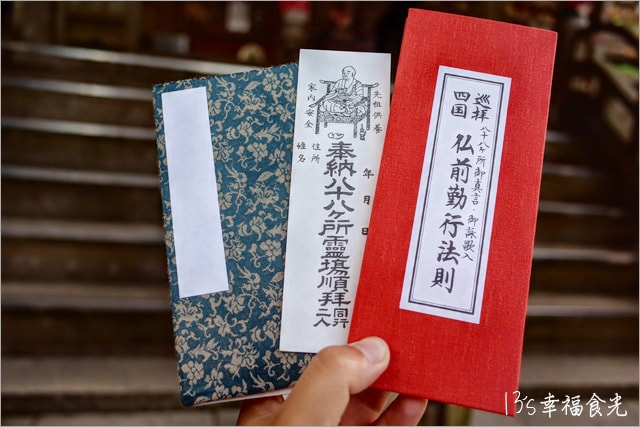 先祖供養
家内安全
年　月　日
奉納八十八ヶ所靈場順拝同行二人
住所
姓名
四国巡拝
八十八ヶ所御真言・御詠歌入
仏前勤行法則
13's幸福食光